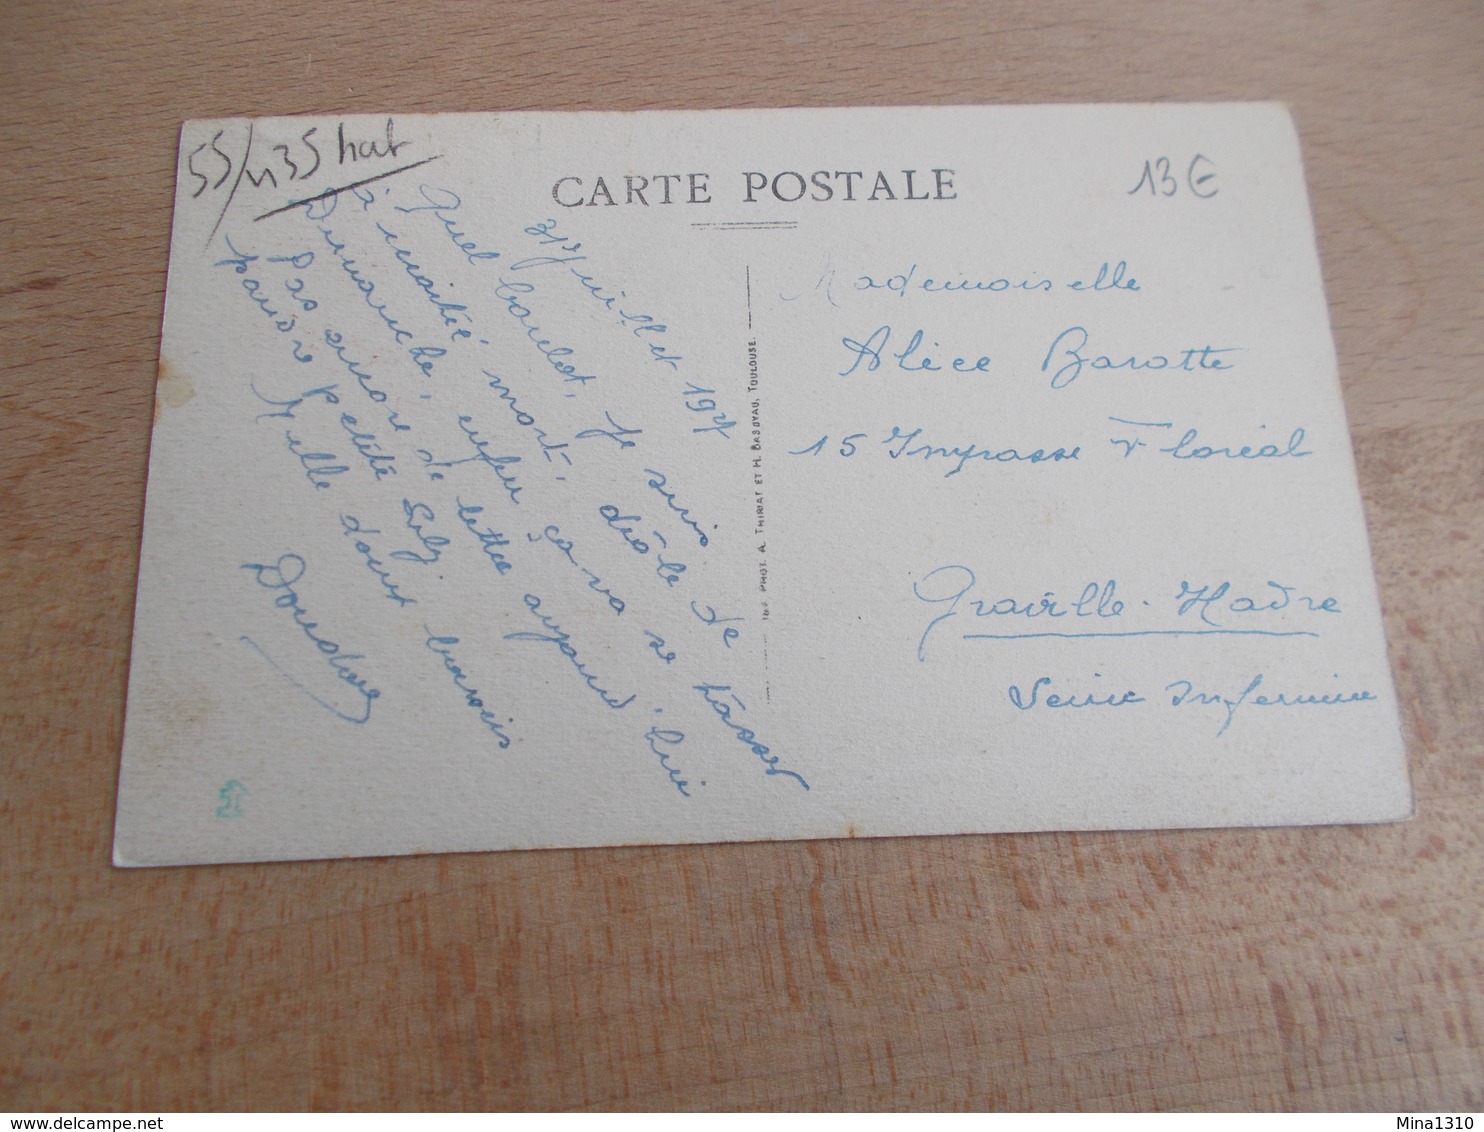 55/435 hat
CARTE POSTALE
13€
Juillet 19
Quel boulot, je suis de
à moitié morte, drôle de
Dimanche, enfin ça va se tasser
Pas encore de lettre aujourd'hui
pauvre petite
Mille doux baisers
IMP. PHOT. A. THIRIAT ET H. BASUYAU, TOULOUSE.
Mademoiselle
Alice Barotte
15 Impasse Floréal
Graville-Havre
Seine Inférieure
Mina1310